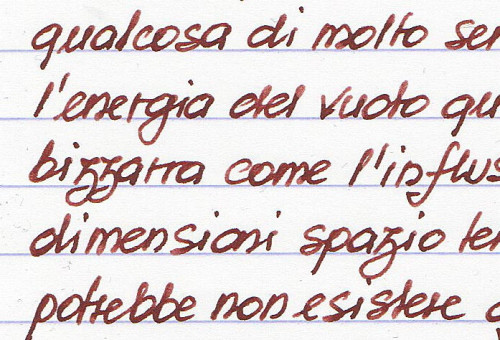 qualcosa di molto ser
l'energia del vuoto qu
bizzarra come l'influs
dimensioni spazio ter
potrebbe non esistere